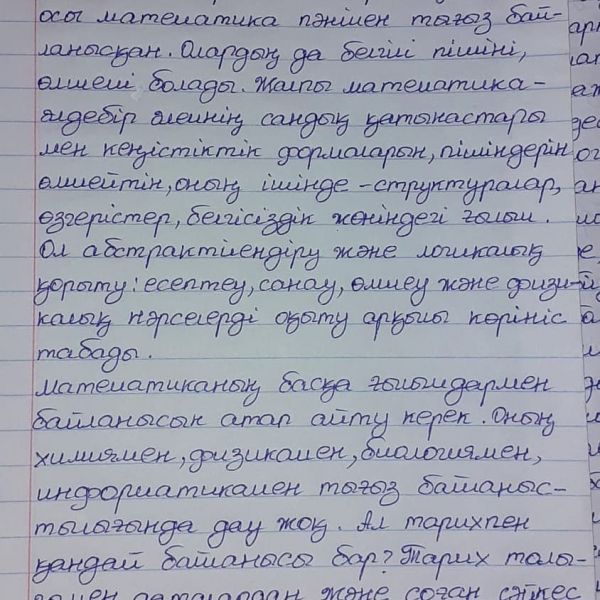 осы математика пәнімен тығыз бай-
ланысқан. Олардың да белгілі пішіні,
өлшемі болады. Жалпы математика -
әлдебір әлемнің сандық қатынастары
мен кеңістіктік формаларын, пішіндерін
өлшейтін, оның ішінде - структуралар,
өзгерістер, белгісіздік жөніндегі ғылым.
Ол абстрактілендіру және логикалық
қорыту: есептеу, санау, өлшеу және физи-
калық нәрселерді оқыту арқылы көрініс
табады.
Математиканың басқа ғылымдармен
байланысын атап айту керек. Оның
химиямен, физикамен, биологиямен,
информатикамен тығыз байланыс-
тылығында дау жоқ. Ал тарихпен
қандай байланысы бар? Тарих толы-
және соған сәйкес